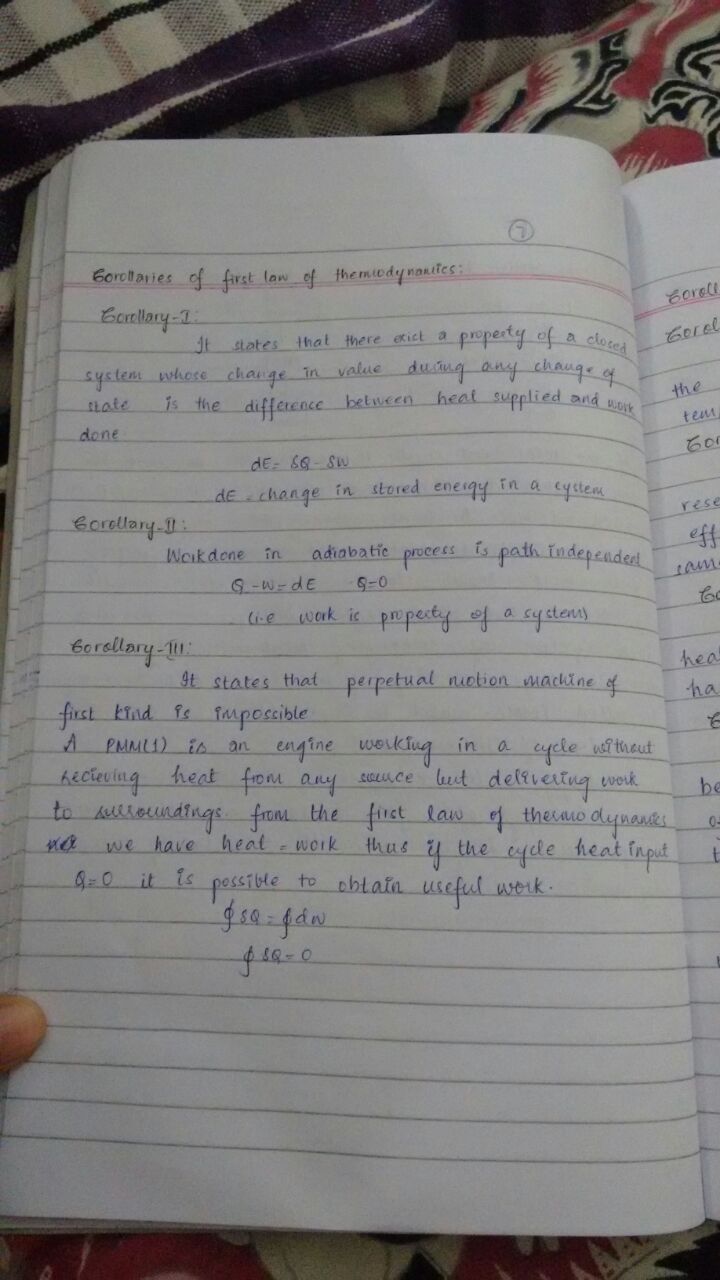 7
Corollaries of first law of thermodynamics:
Corollary-I:
It states that there exict a property of a closed
system whose change in value during any change of
state is the difference between heat supplied and work
done
dE = δQ - δW
dE = change in stored energy in a cyctem
Corollary-II:
Workdone in adiabatic process is path independent
Q - W = dE Q=0
(i.e work is property of a system)
Corollary-III:
It states that perpetual motion machine of
first kind is impossible
A PMM(1) is an engine working in a cycle without
recieving heat from any source but delivering work
to surroundings. from the first law of thermodynamics
we have heat = work thus if the cycle heat input
Q=0 it is possible to obtain useful work.
∮ δQ = ∮ dW
∮ δQ = 0
Coroll
Corol
the
tem
Cor
rese
eff
sam
Co
heat
ha
C
be
o
t